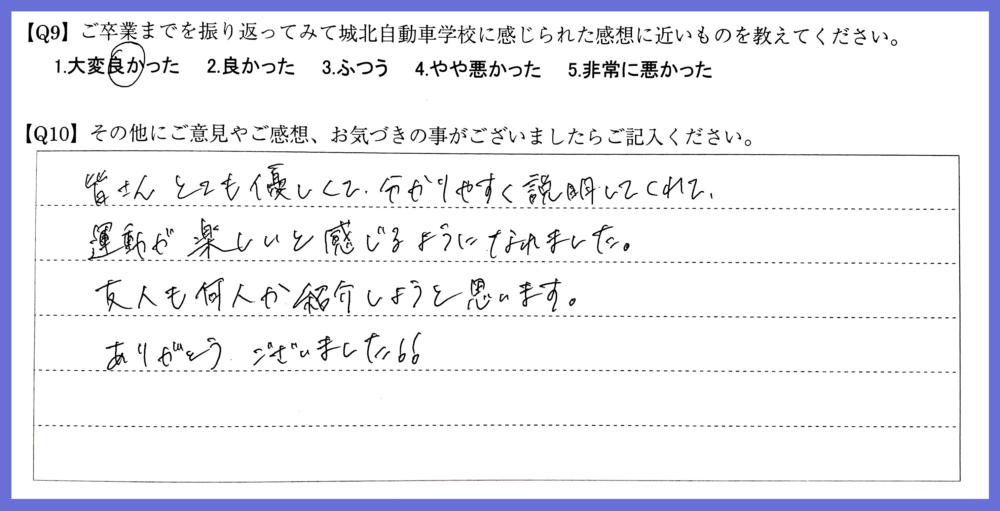 【Q9】ご卒業までを振り返ってみて城北自動車学校に感じられた感想に近いものを教えてください。
1.大変良かった 2.良かった 3.ふつう 4.やや悪かった 5.非常に悪かった
【Q10】その他にご意見やご感想、お気づきの事がございましたらご記入ください。
皆さんとても優しくて、分かりやすく説明してくれて、
運動が楽しいと感じるようになれました。
友人も何人か紹介しようと思います。
ありがとうございました66